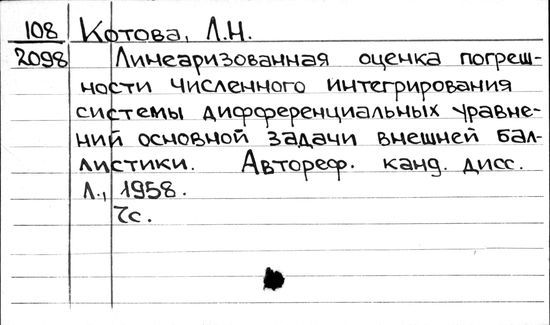 108 Котова, Л.Н.
2098 Линеаризованная оценка погреш-
ности численного интегрирования
системы дифференциальных уравне-
ний основной задачи внешней бал-
листики. Автореф. канд. дисс.
Л., 1958.
7с.